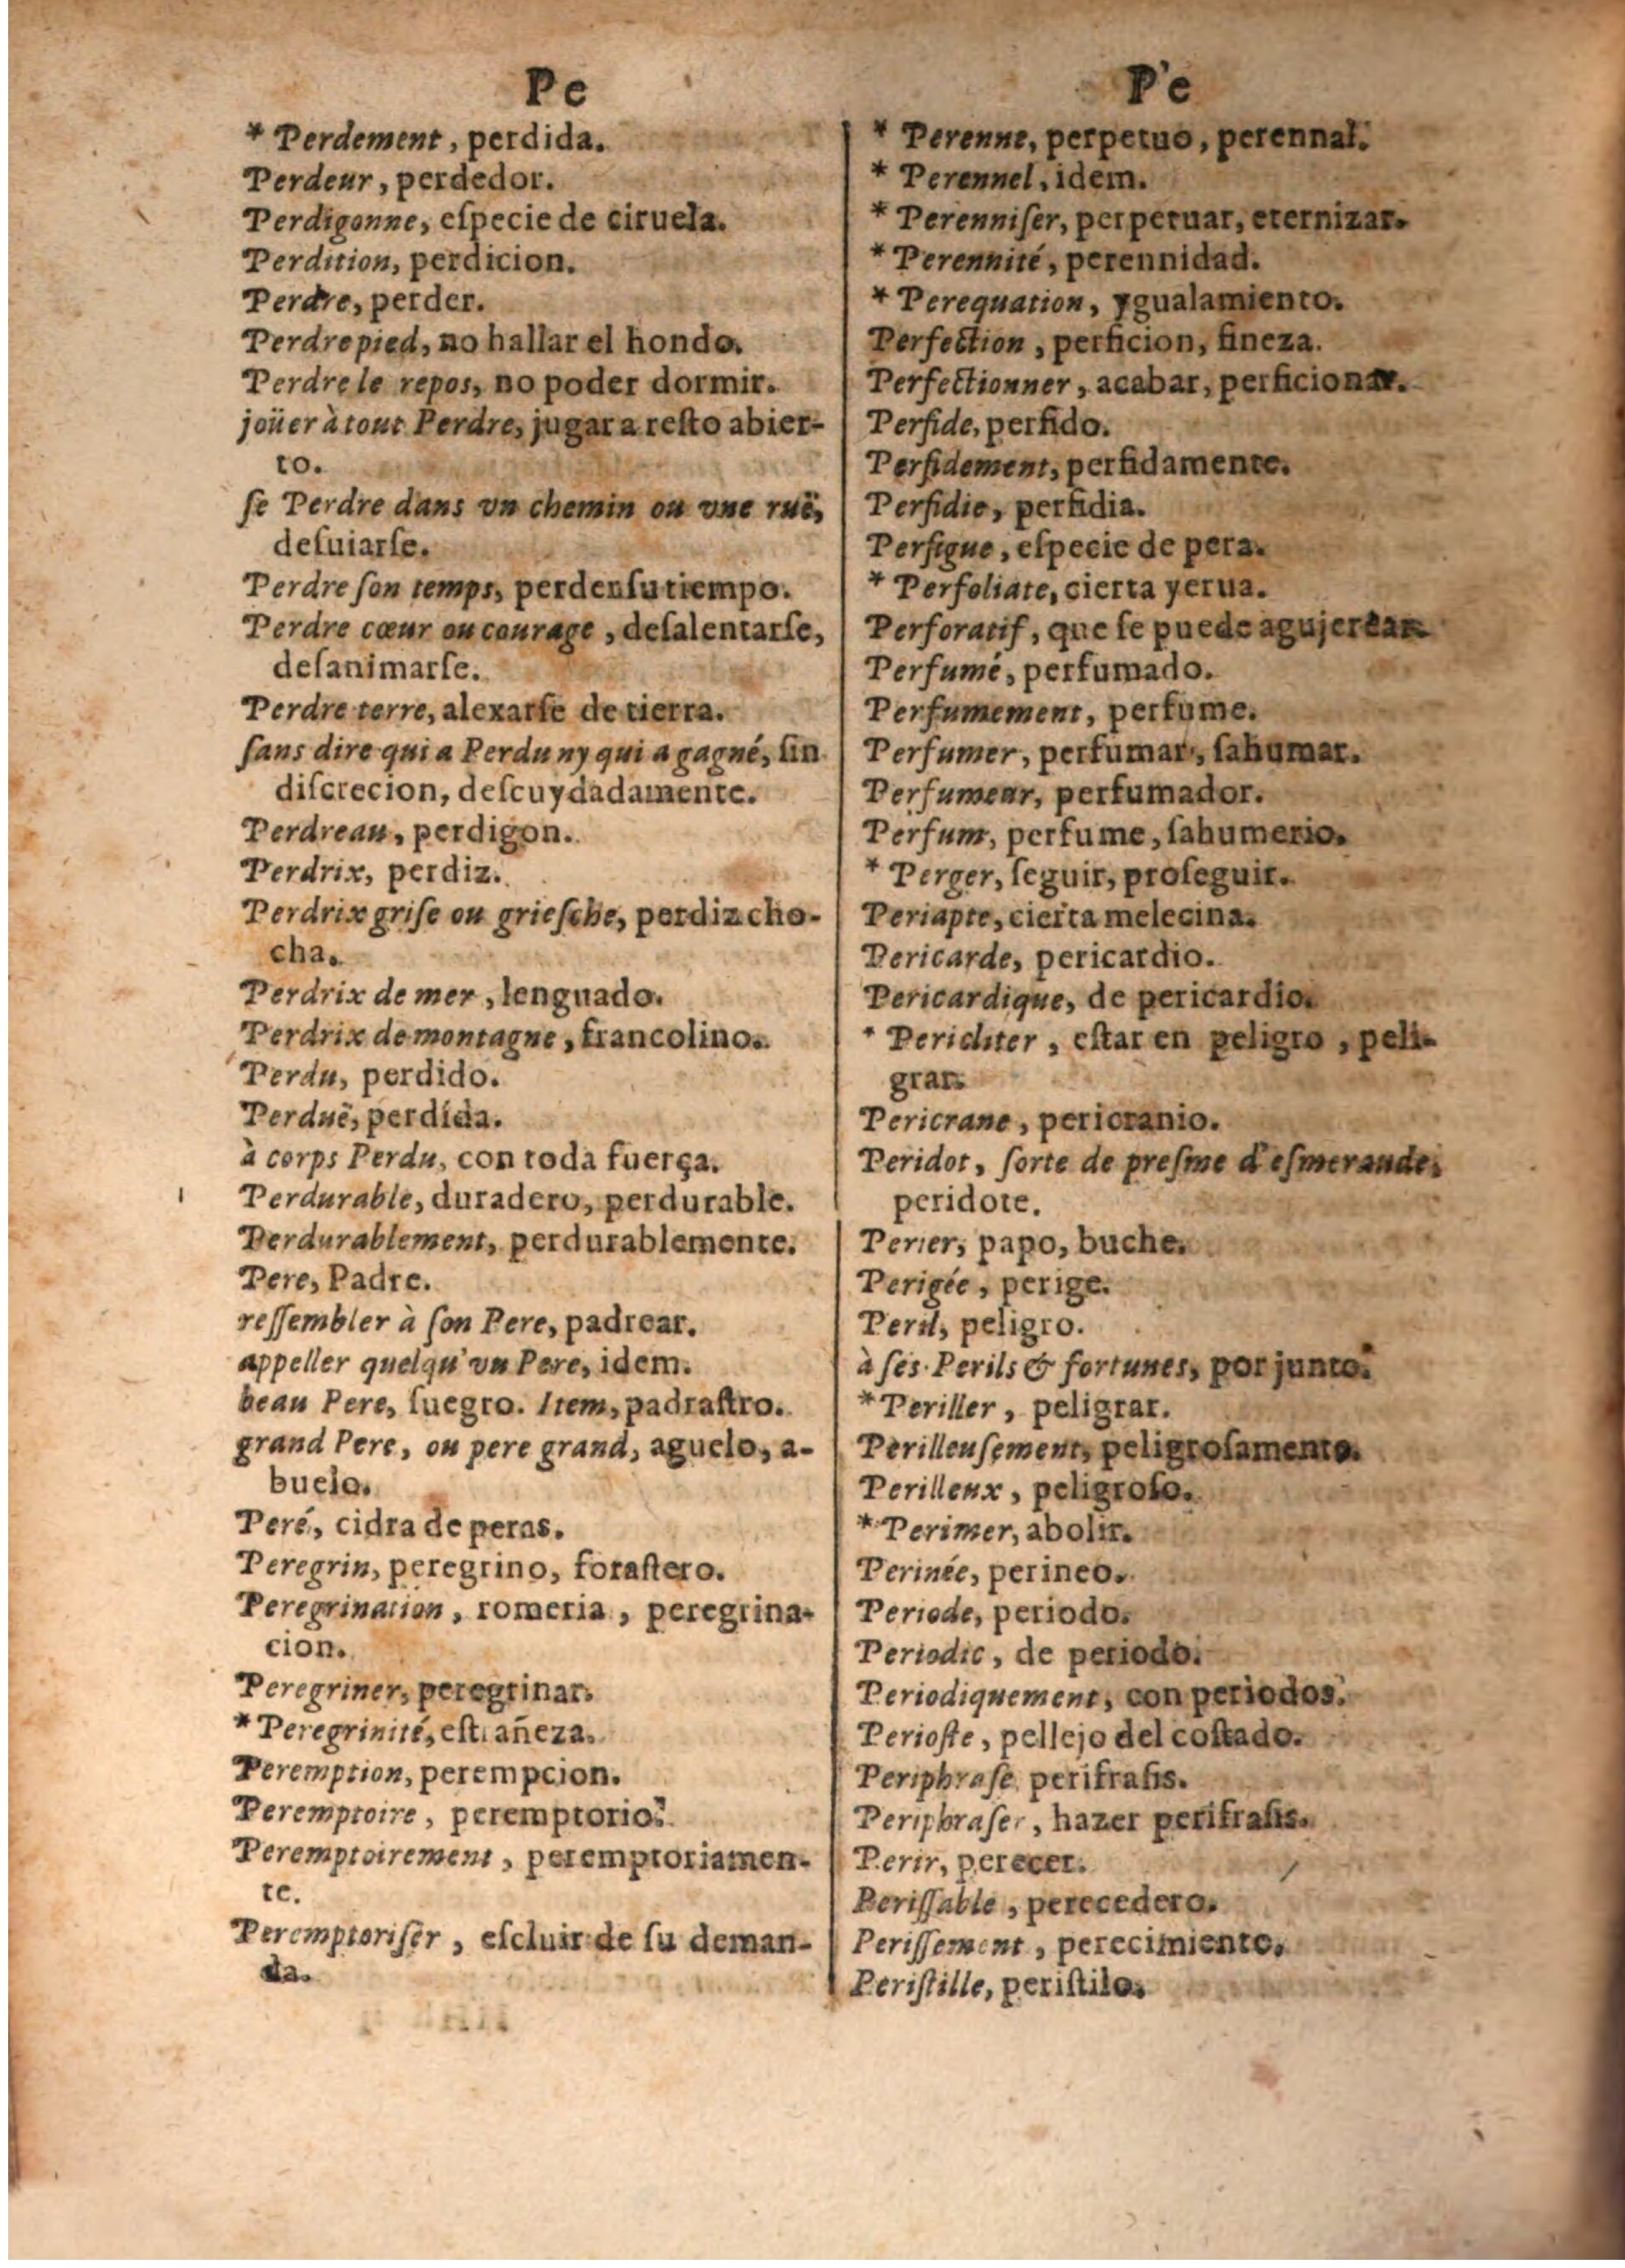 Pe
* Perdement, perdida.
Perdeur, perdedor.
Perdigonne, eſpecie de ciruela.
Perdition, perdicion.
Perdre, perder.
Perdre pied, no hallar el hondo.
Perdre le repos, no poder dormir.
joüer à tout Perdre, jugar a reſto abier-
to.
ſe Perdre dans vn chemin ou vne ruë,
deſuiarſe.
Perdre ſon temps, perdenſu tiempo.
Perdre cœur ou courage, deſalentarſe,
deſanimarſe.
Perdre terre, alexarſe de tierra.
ſans dire qui a Perdu ny qui a gagné, ſin
diſcrecion, deſcuydadamente.
Perdreau, perdigon.
Perdrix, perdiz.
Perdrix griſe ou grieſche, perdiz cho-
cha.
Perdrix de mer, lenguado.
Perdrix de montagne, francolino.
Perdu, perdido.
Perduë, perdida.
à corps Perdu, con toda fuerça.
Perdurable, duradero, perdurable.
Perdurablement, perdurablemente.
Pere, Padre.
reſſembler à ſon Pere, padrear.
appeller quelqu'vn Pere, idem.
beau Pere, ſuegro. Item, padraſtro.
grand Pere, ou pere grand, aguelo, a-
buelo.
Peré, cidra de peras.
Peregrin, peregrino, foraſtero.
Peregrination, romeria, peregrina-
cion.
Peregriner, peregrinar.
* Peregrinité, eſtrañeza.
Peremption, perempcion.
Peremptoire, peremptorio.
Peremptoirement, peremptoriamen-
te.
Peremptoriſer, eſcluir de ſu deman-
da.
Pe
* Perenne, perpetuo, perennal.
* Perennel, idem.
* Perenniſer, perpetuar, eternizar.
* Perennité, perennidad.
* Perequation, ygualamiento.
Perfection, perficion, fineza.
Perfectionner, acabar, perficionar.
Perfide, perfido.
Perfidement, perfidamente.
Perfidie, perfidia.
Perfigue, eſpecie de pera.
* Perfoliate, cierta yerua.
Perforatif, que ſe puede agujerear.
Perfumé, perfumado.
Perfumement, perfume.
Perfumer, perfumar, ſahumar.
Perfumeur, perfumador.
Perfum, perfume, ſahumerio.
* Perger, ſeguir, proſeguir.
Periapte, cierta melecina.
Pericarde, pericardio.
Pericardique, de pericardio.
* Pericliter, eſtar en peligro, peli-
grar.
Pericrane, pericranio.
Peridot, ſorte de preſme d'eſmeraude,
peridote.
Perier, papo, buche.
Perigée, perige.
Peril, peligro.
à ſes Perils & fortunes, por junto.
* Periller, peligrar.
Perilleuſement, peligroſamente.
Perilleux, peligroſo.
* Perimer, abolir.
Perinée, perineo.
Periode, periodo.
Periodic, de periodo.
Periodiquement, con periodos.
Perioſte, pellejo del coſtado.
Periphraſe perifraſis.
Periphraſer, hazer perifraſis.
Perir, perecer.
Periſſable, perecedero.
Periſſement, perecimiento.
Periſtille, periſtilo.